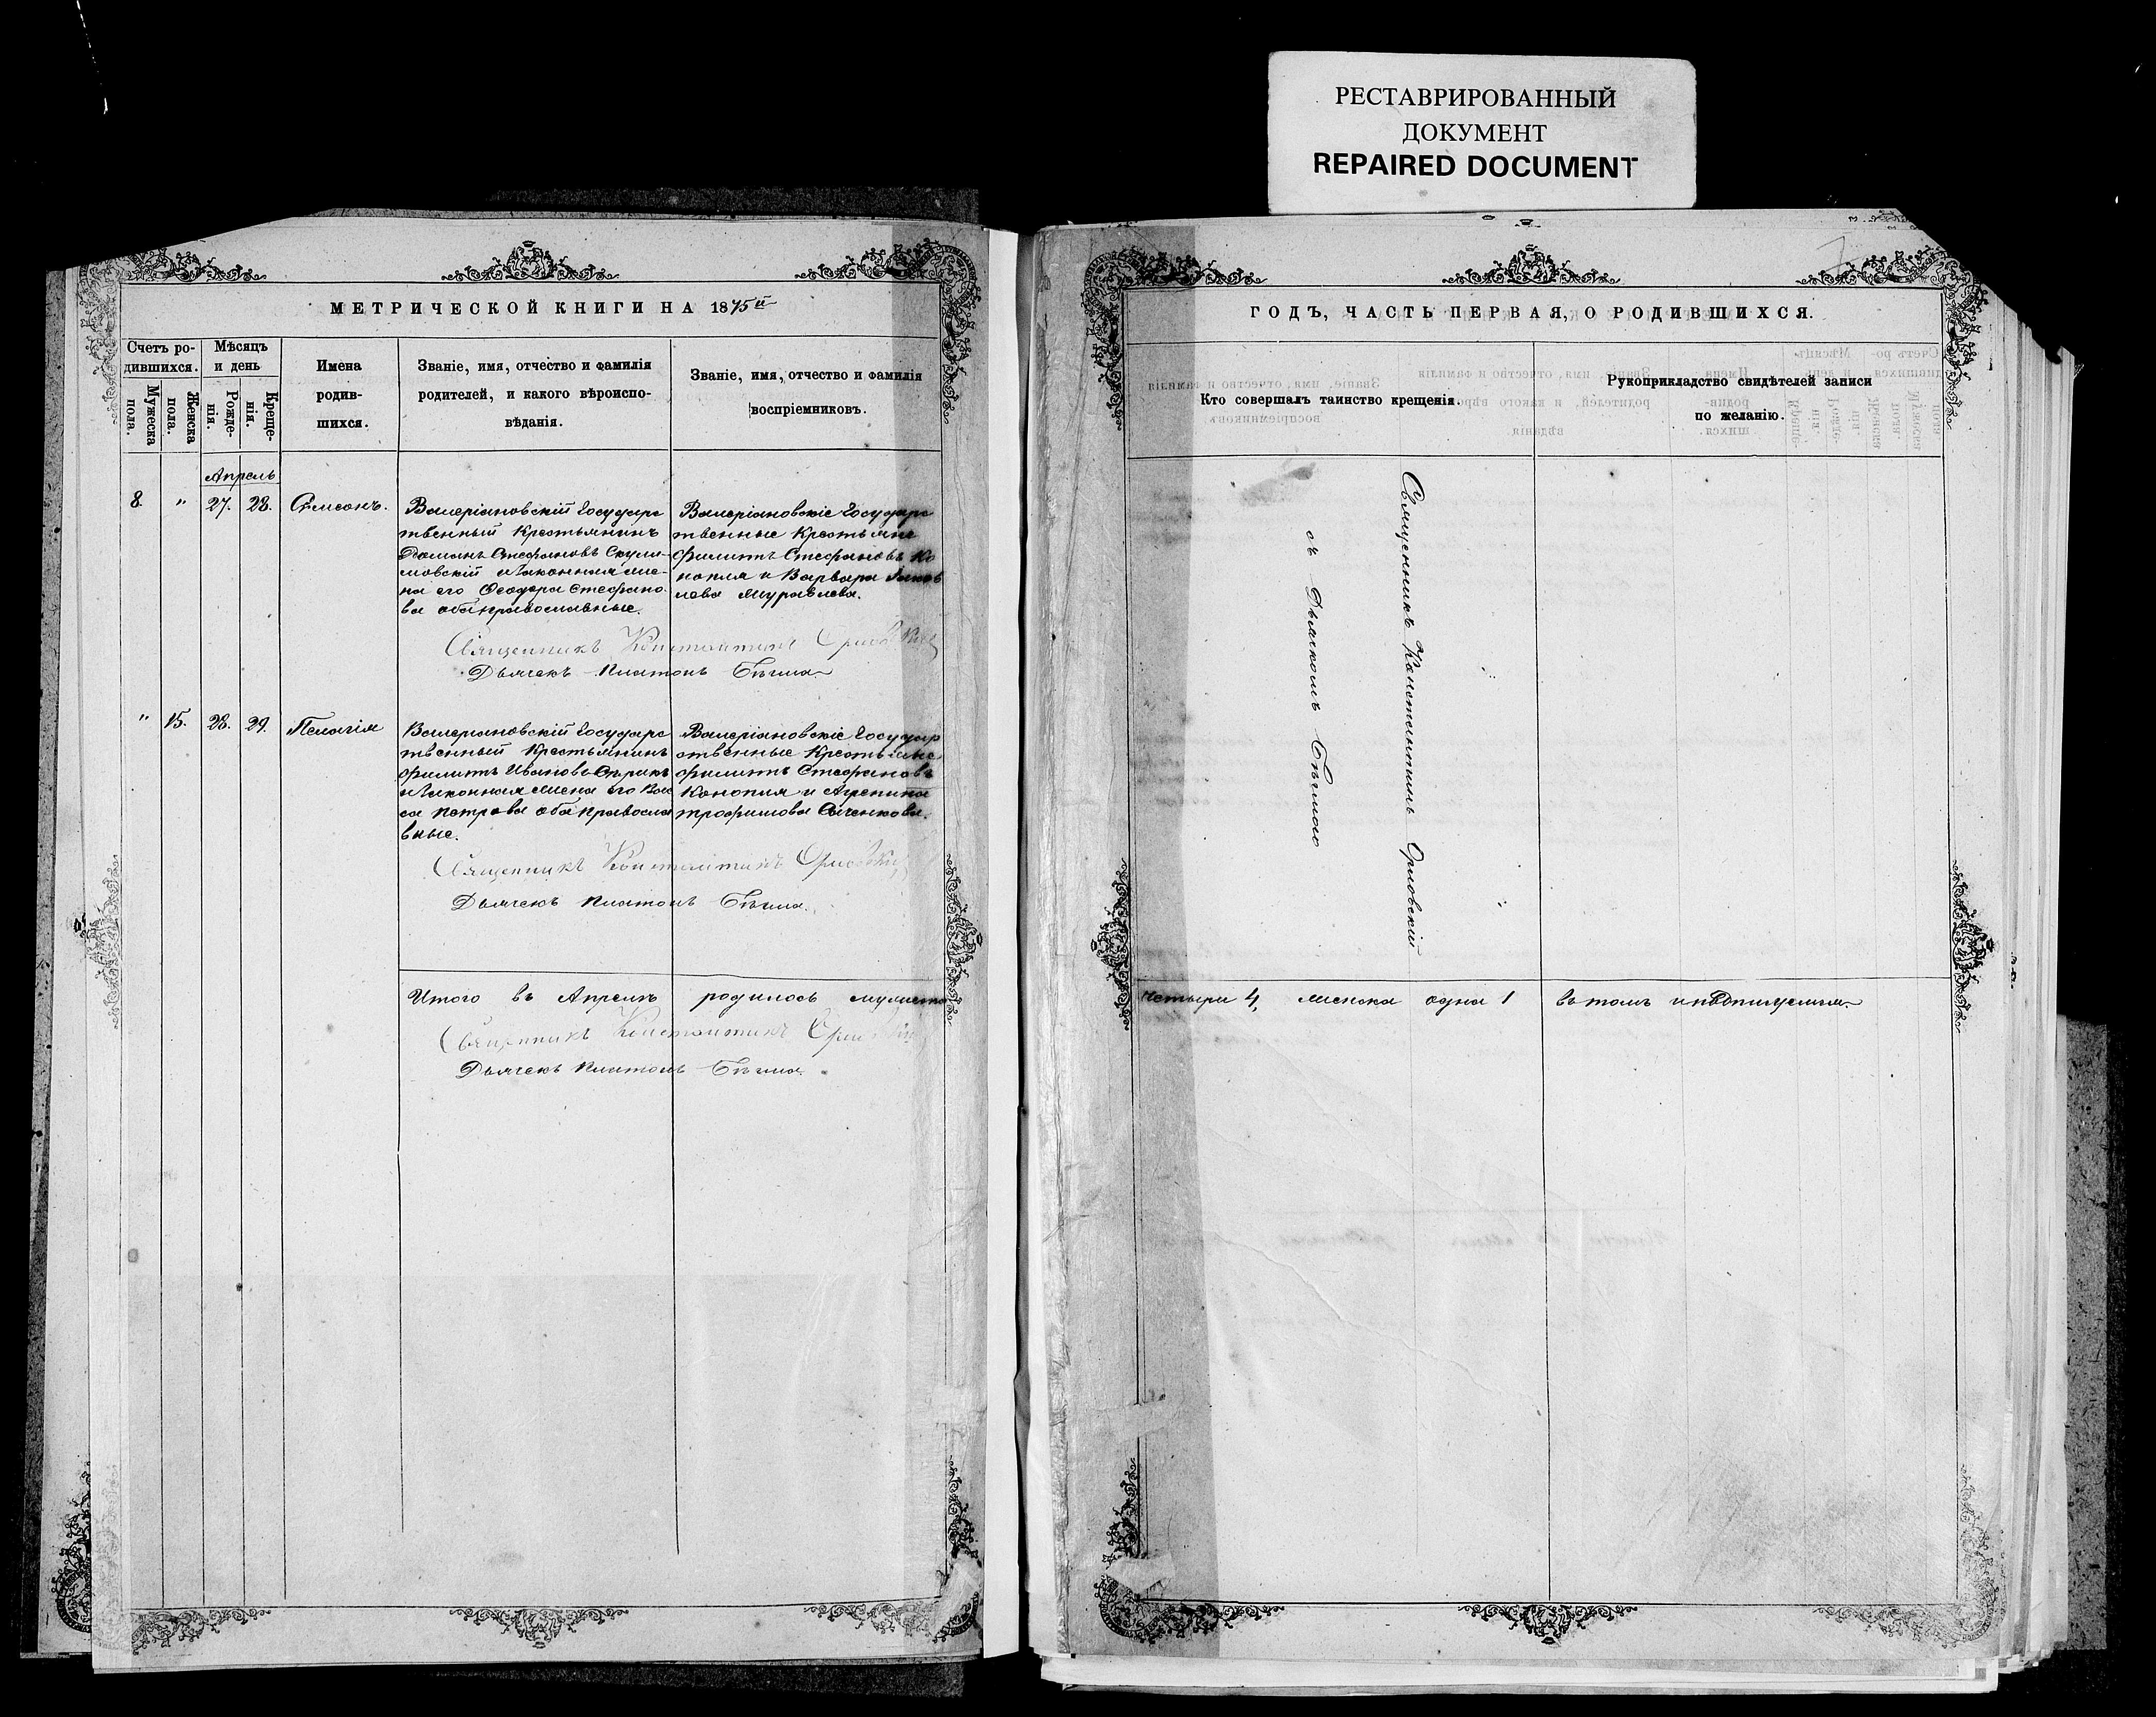 РЕСТАВРИРОВАННЫЙ
ДОКУМЕНТ
REPAIRED DOCUMENT
МЕТРИЧЕСКОЙ КНИГИ НА 1875й
Счетъ ро-
дившихся.
Мужеска
пола.
Женска
пола.
Мѣсяцъ
и день
Рожде-
нія.
Креще-
нія.
Имена
родив-
шихся.
Званіе, имя, отчество и фамилія
родителей, и какого вѣроиспо-
вѣданія.
Званіе, имя, отчество и фамилія
воспріемниковъ.
Апрель
8. " 27. 28. Симеонъ.
Валеріановскій Государс
твенный Крестьянинъ
Даміанъ Стефановъ
мовскій и законная же-
на его Ѳеодора Стефано
ва оба православные.
Валеріановскіе Государс
твенные Крестьяне
Филиппъ Стефановъ Ко
нопля и Варвара Яков
лева Муравлева.
Священникъ Константинъ Орловскій
Дьячекъ Платонъ Бѣгма
" 15. 28. 29. Пелагія
Валеріановскій Государс
твенный Крестьянинъ
Филиппъ Ивановъ
и законная жена его Вас
са Петрова оба правосла
вные.
Валеріановскіе Государ
ственные Крестьяне
Филиппъ Стефановъ
Конопля и Агрепина
Трофимова
Священникъ Константинъ Орловскій
Дьячекъ Платонъ Бѣгма.
Итого въ Апрелѣ родилось мужеска
Священникъ Константинъ Орловскій
Дьячекъ Платонъ Бѣгма.
ГОДЪ, ЧАСТЬ ПЕРВАЯ, О РОДИВШИХСЯ.
Кто совершалъ таинство крещенія.
Рукоприкладство свидѣтелей записи
по желанію.
Священникъ Константинъ Орловскій
съ Дьячкомъ Бѣгмою
четыри 4, женска одна 1 въ томъ и подписуемся.